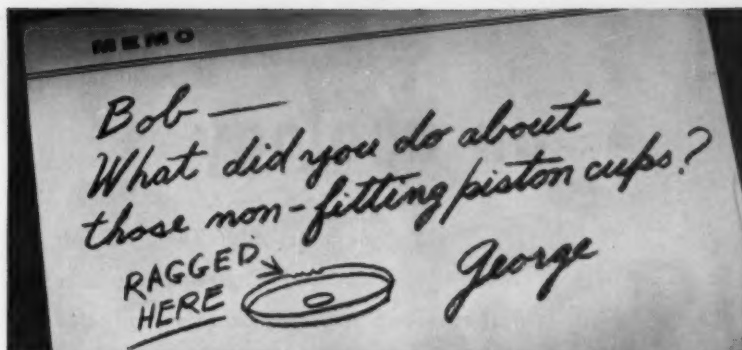 MEMO
Bob —
What did you do about
those non-fitting piston cups?
RAGGED
HERE
George